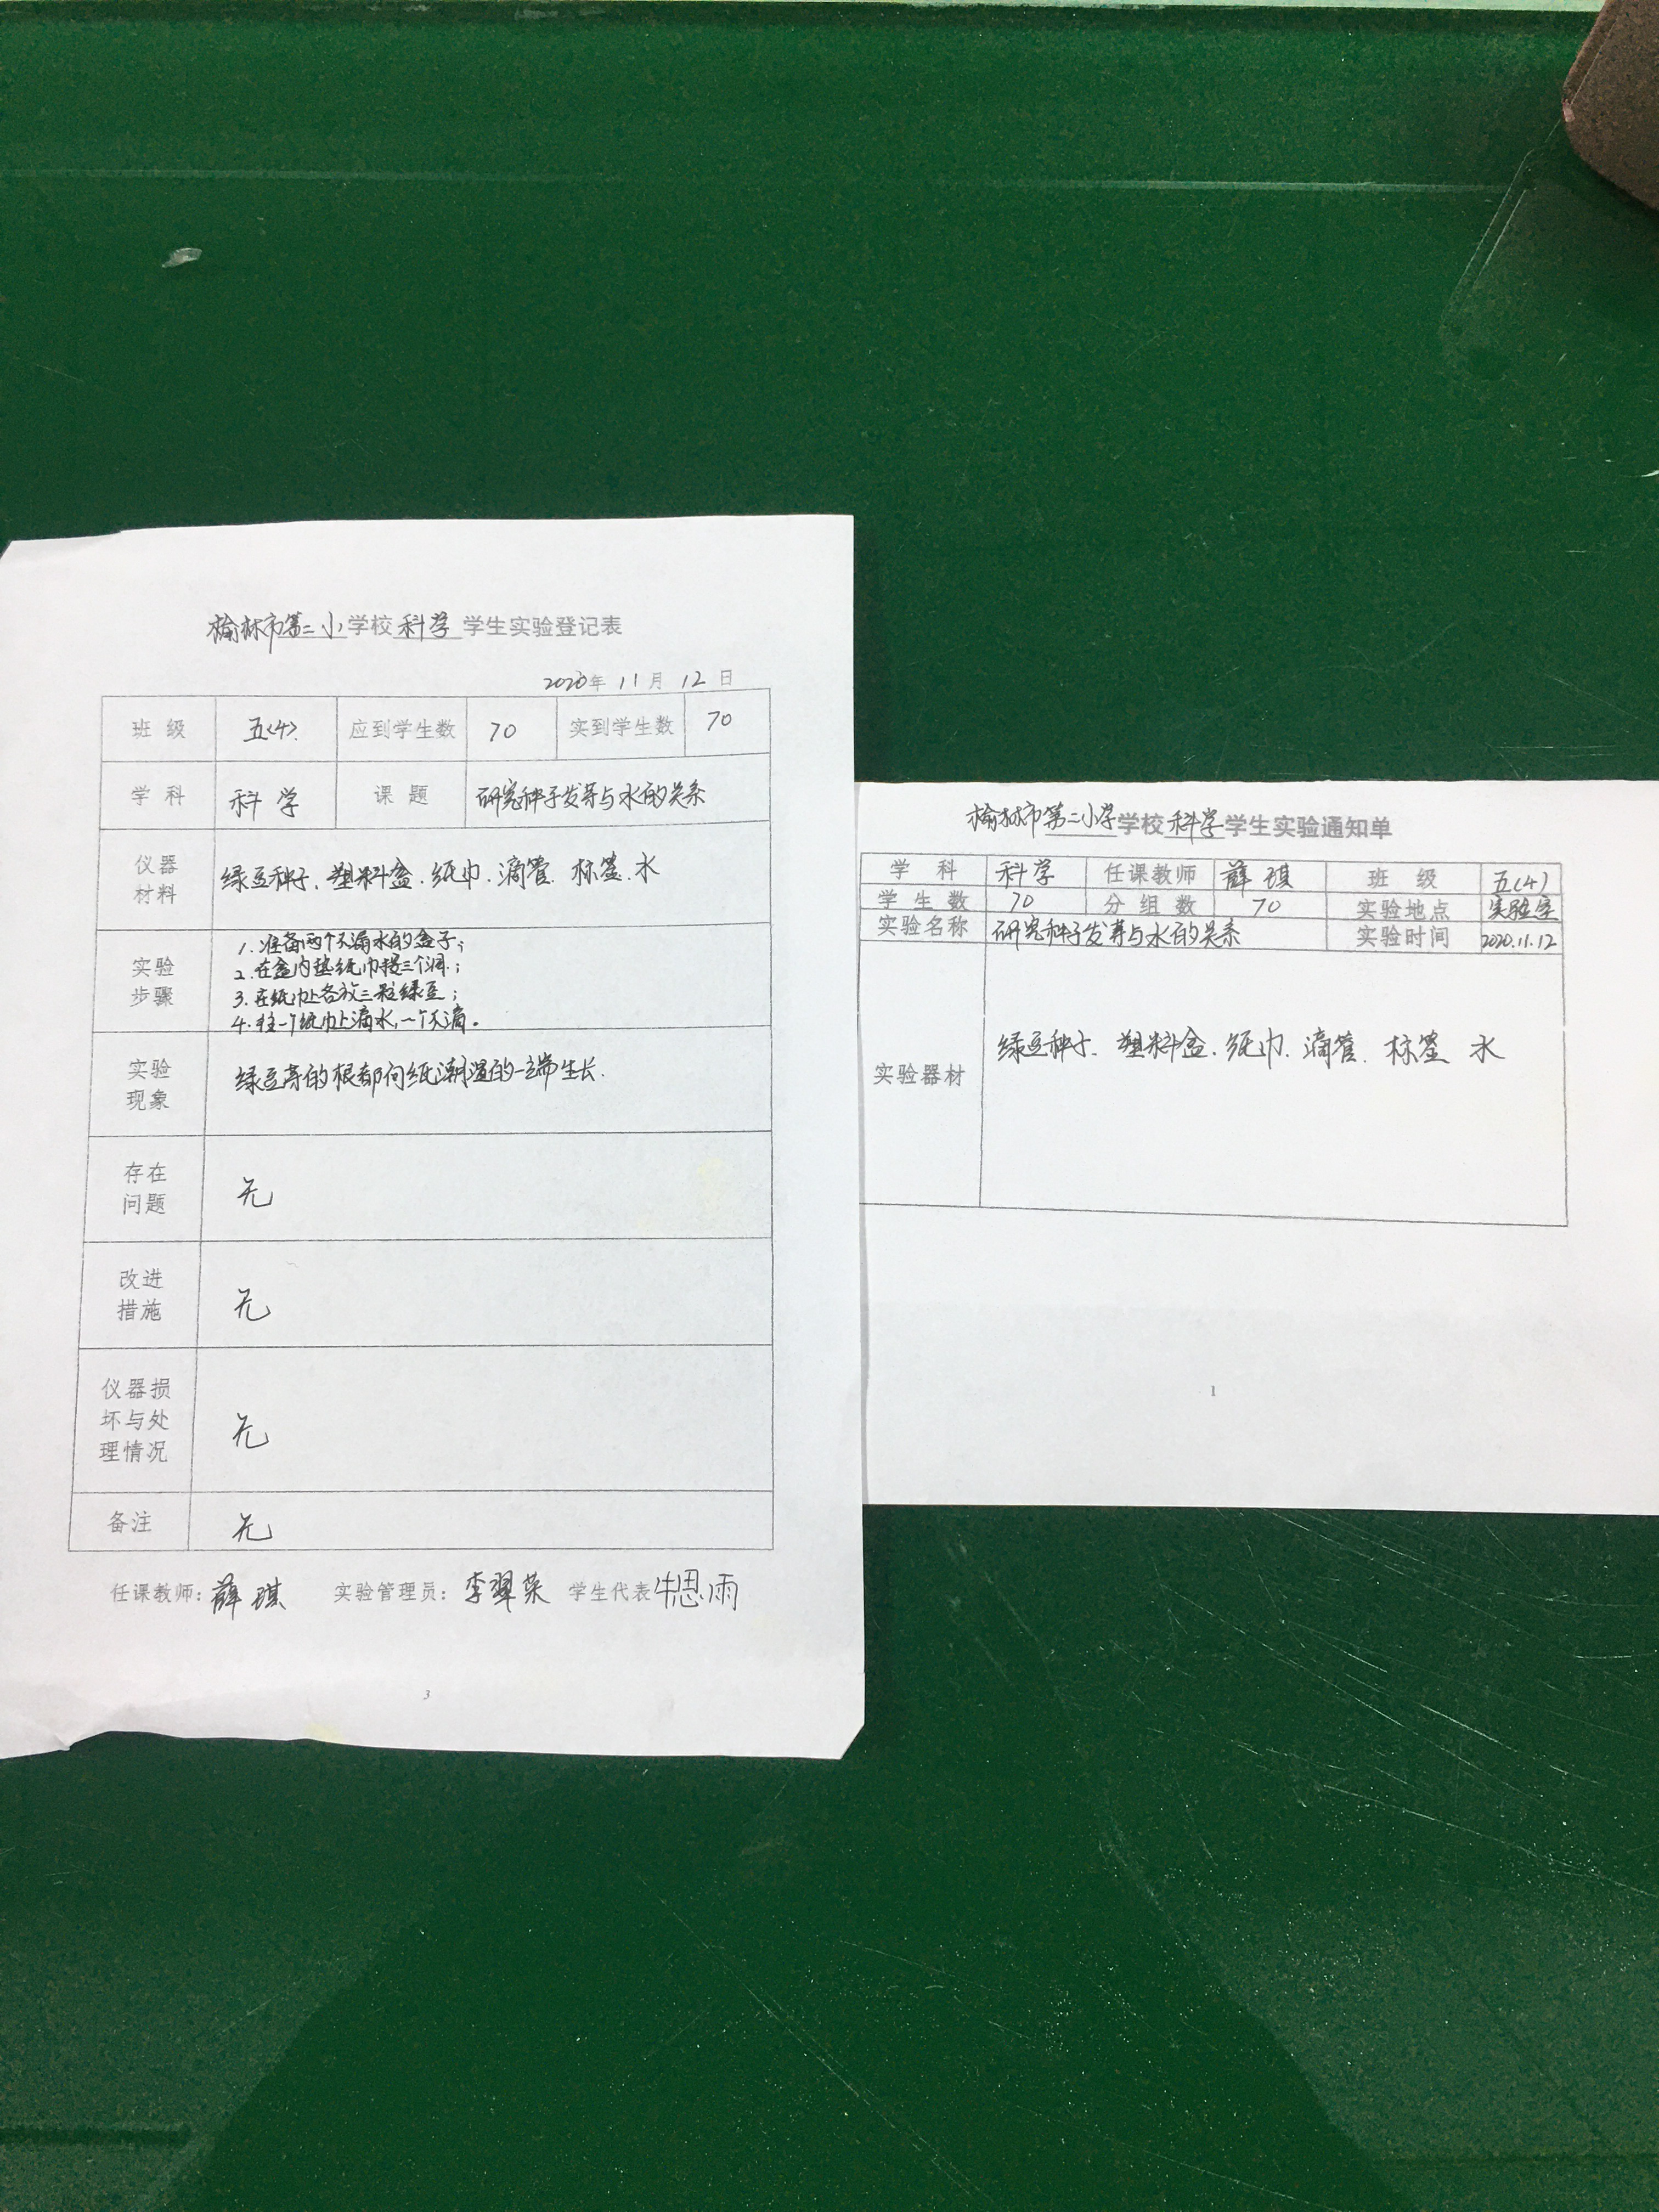 榆林市第二小学校科学学生实验登记表
2020年 11月 12日
班级 五(4) 应到学生数 70 实到学生数 70
学科 科学 课题 研究种子发芽与水的关系
仪器
材料
绿豆种子、塑料盒、纸巾、滴管、标签、水
实验
步骤
1. 准备两个不漏水的盒子;
2. 在盒内垫纸巾三个洞;
3. 在纸巾上各放三粒绿豆;
4. 往一个纸巾上滴水,一个不滴。
实验
现象
绿豆芽的根都向纸潮湿的一端生长.
存在
问题
无
改进
措施
无
仪器损
坏与处
理情况
无
备注 无
任课教师:薛琪 实验管理员:李翠荣 学生代表 牛思雨
3
榆林市第二小学学校科学学生实验通知单
学科 科学 任课教师 薛琪 班级 五(4)
学生数 70 分组数 70 实验地点 实验室
实验名称 研究种子发芽与水的关系 实验时间 2020.11.12
实验器材 绿豆种子、塑料盒、纸巾、滴管、标签 水
1